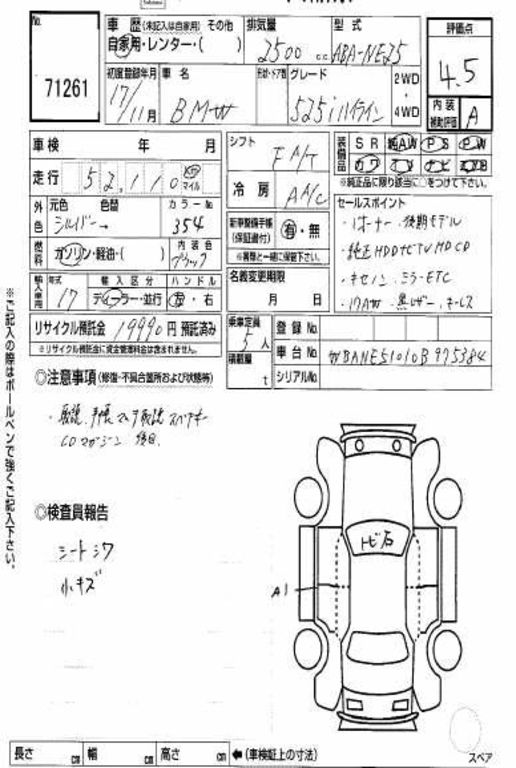 No. 71261
車歴 (未記入は自家用) その他
自家用・レンター・( )
排気量 2500 cc
型式 ABA-NE25
評価点 4.5
内装補助評価 A
初度登録年月 17/11月
車名 BMW
形状・ドア数
グレード 525iハイライン
2WD・4WD
車検 年 月
シフト FA/T
装備品 SR 純AW PS PW
カワ TV ナビ エアB
※純正品に限り該当に○をつけて下さい。
走行 52,110 km マイル
冷房 AAC
外色 元色 シルバー→ 色替 カラーNo 354
内装色 ブラック
燃料 ガソリン・軽油・( )
新車整備手帳(保証書付) 有・無
※実車と一緒に保管下さい。
セールスポイント
・1オーナー、後期モデル
・純正HDDナビTV HDCD
・キセノン ミラーETC
・17AW 黒レザー キーレス
輸入車用 年式 17
輸入区分 ディーラー・並行
ハンドル 左・右
名義変更期限 月 日
リサイクル預託金 19990円 預託済み
※リサイクル預託金に資金管理料金は含まれません。
乗車定員 5人
積載量 t
登録No.
車台No. WBANE51010B975384
シリアルNo.
◎注意事項 (修復・不具合箇所および状態等)
・取説、手帳、ナビ取説、スペアキー
CDマガジン 後日
◎検査員報告
シートシワ
小キズ
トビ石
A1
※ご記入の際はボールペンで強くご記入下さい。
長さ cm 幅 cm 高さ cm ←(車検証上の寸法)
スペア